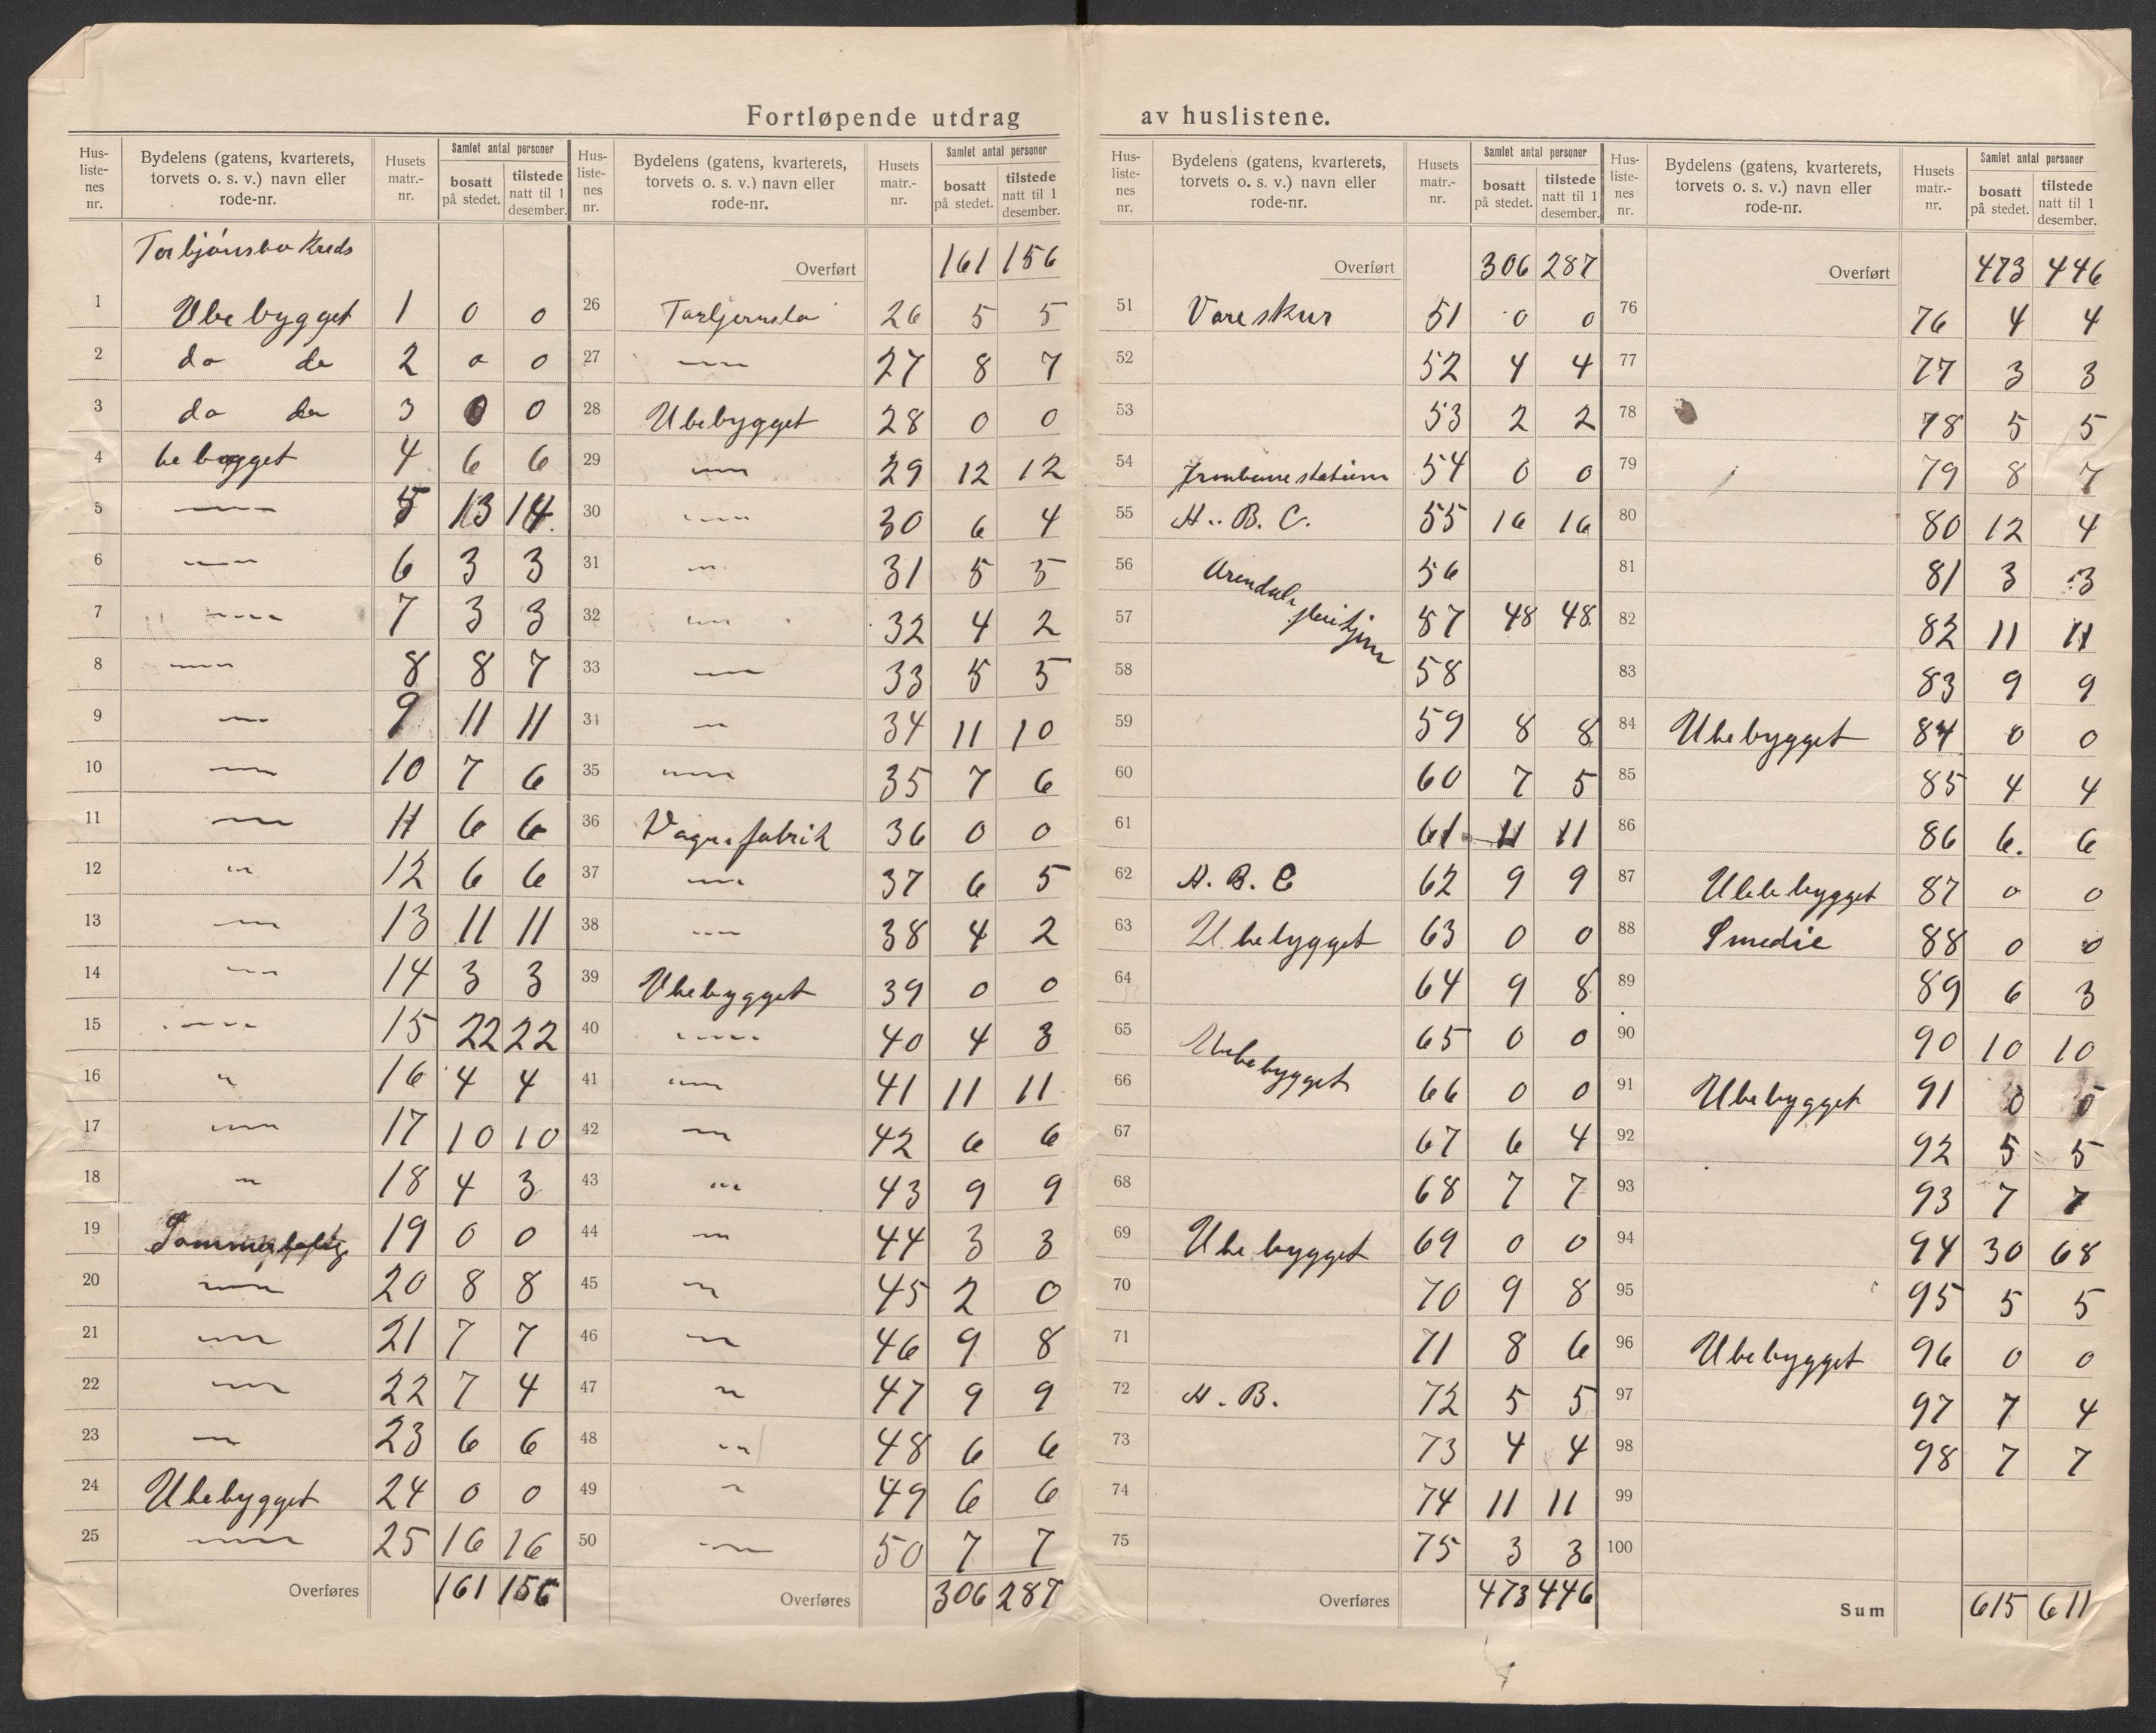 Fortløpende utdrag av huslistene.
Hus-liste-nes nr. | Bydelens (gatens, kvarterets, torvets o. s. v.) navn eller rode-nr. | Husets matr.-nr. | Samlet antal personer bosatt på stedet. | tilstede natt til 1 desember.
Torbjønsbo Kreds
1 Ubebygget 1 0 0
2 do do 2 0 0
3 do do 3 0 0
4 bebygget 4 6 6
5 — 5 13 14
6 — 6 3 3
7 — 7 3 3
8 — 8 8 7
9 — 9 11 11
10 — 10 7 6
11 — 11 6 6
12 — 12 6 6
13 — 13 11 11
14 — 14 3 3
15 — 15 22 22
16 — 16 4 4
17 — 17 10 10
18 — 18 4 3
19 19 0 0
20 — 20 8 8
21 — 21 7 7
22 — 22 7 4
23 — 23 6 6
24 Ubebygget 24 0 0
25 — 25 16 16
Overføres 161 156
Hus-liste-nes nr. | Bydelens (gatens, kvarterets, torvets o. s. v.) navn eller rode-nr. | Husets matr.-nr. | Samlet antal personer bosatt på stedet. | tilstede natt til 1 desember.
Overført 161 156
26 Torbjørnsbo 26 5 5
27 — 27 8 7
28 Ubebygget 28 0 0
29 — 29 12 12
30 — 30 6 4
31 — 31 5 5
32 — 32 4 2
33 — 33 5 5
34 — 34 11 10
35 — 35 7 6
36 Vognfabrik 36 0 0
37 — 37 6 5
38 — 38 4 2
39 Ubebygget 39 0 0
40 — 40 4 3
41 — 41 11 11
42 — 42 6 6
43 — 43 9 9
44 — 44 3 3
45 — 45 2 0
46 — 46 9 8
47 — 47 9 9
48 — 48 6 6
49 — 49 6 6
50 — 50 7 7
Overføres 306 287
Hus-liste-nes nr. | Bydelens (gatens, kvarterets, torvets o. s. v.) navn eller rode-nr. | Husets matr.-nr. | Samlet antal personer bosatt på stedet. | tilstede natt til 1 desember.
Overført 306 287
51 Vareskur 51 0 0
52 52 4 4
53 53 2 2
54 Jernbanestation 54 0 0
55 H.. B. C. 55 16 16
56 Arendals 56
57 pleiehjem 57 48 48
58 58
59 59 8 8
60 60 7 5
61 61 11 11
62 H. B. C 62 9 9
63 Ubebygget 63 0 0
64 64 9 8
65 Ubebygget 65 0 0
66 66 0 0
67 67 6 4
68 68 7 7
69 Ubebygget 69 0 0
70 70 9 8
71 71 8 6
72 H. B. 72 5 5
73 73 4 4
74 74 11 11
75 75 3 3
Overføres 473 446
Hus-liste-nes nr. | Bydelens (gatens, kvarterets, torvets o. s. v.) navn eller rode-nr. | Husets matr.-nr. | Samlet antal personer bosatt på stedet. | tilstede natt til 1 desember.
Overført 473 446
76 76 4 4
77 77 3 3
78 78 5 5
79 79 8 7
80 80 12 4
81 81 3 3
82 82 11 11
83 83 9 9
84 Ubebygget 84 0 0
85 85 4 4
86 86 6. 6
87 Ubebygget 87 0 0
88 Smedie 88 0 0
89 89 6 3
90 90 10 10
91 Ubebygget 91 0 0
92 92 5 5
93 93 7 7
94 94 30 68
95 95 5 5
96 Ubebygget 96 0 0
97 97 7 4
98 98 7 7
99
100
Sum 615 611